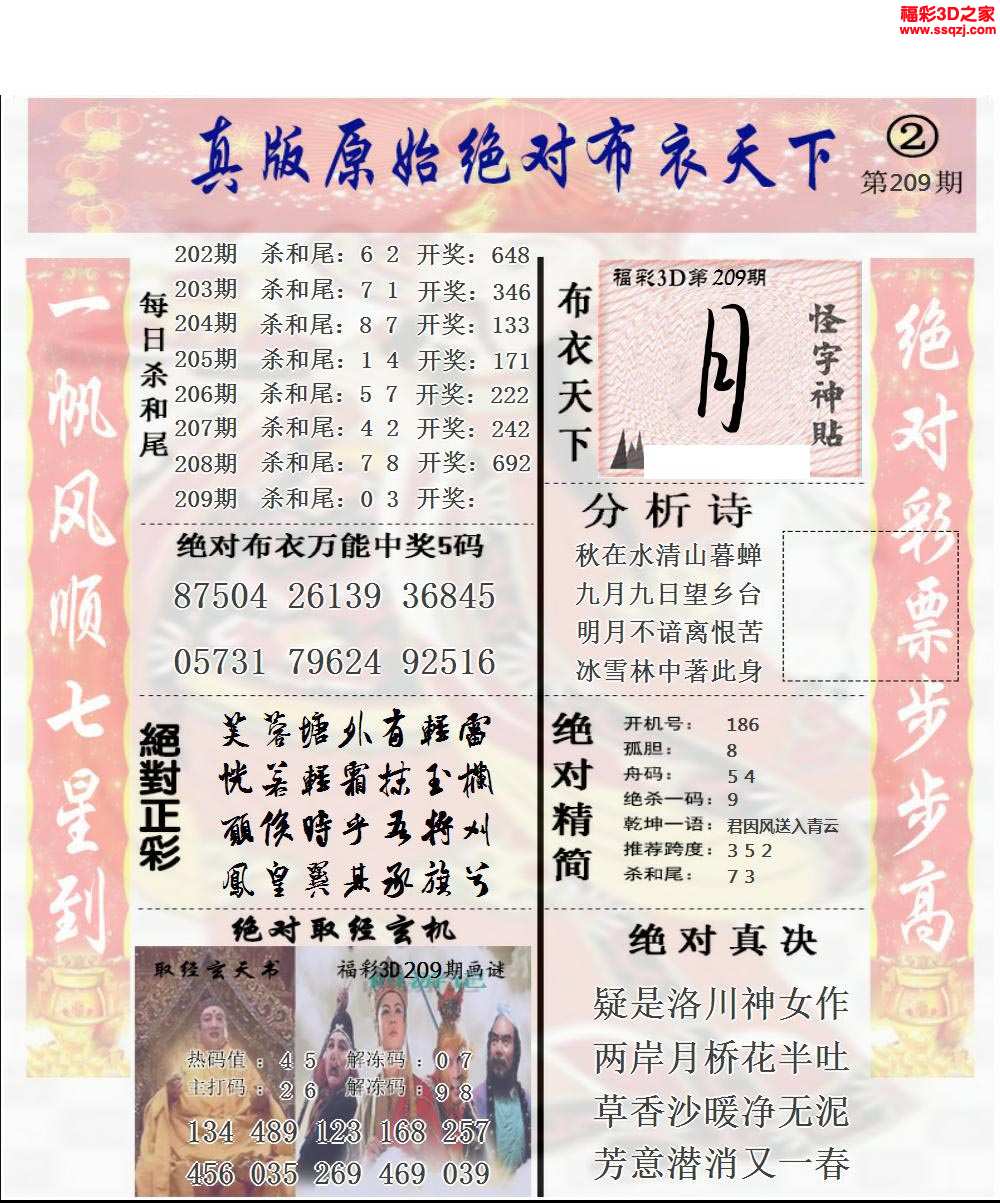 福彩3D之家
www.ssqzj.com
真版原始绝对布衣天下
②
第209期
一帆风顺七星到
每日杀和尾
202期 杀和尾：6 2 开奖：648
203期 杀和尾：7 1 开奖：346
204期 杀和尾：8 7 开奖：133
205期 杀和尾：1 4 开奖：171
206期 杀和尾：5 7 开奖：222
207期 杀和尾：4 2 开奖：242
208期 杀和尾：7 8 开奖：692
209期 杀和尾：0 3 开奖：
绝对布衣万能中奖5码
87504 26139 36845
05731 79624 92516
絕對正彩
芙蓉塘外有輕雷
恍若輕霜抹玉欄
願俟時乎吾將刈
鳳皇翼其承旗兮
绝对取经玄机
取经玄天书
福彩3D209期画谜
热码值：4 5 解冻码：0 7
主打码：2 6 解冻码：9 8
134 489 123 168 257
456 035 269 469 039
布衣天下
福彩3D第209期
怪字神貼
分析诗
秋在水清山暮蝉
九月九日望乡台
明月不谙离恨苦
冰雪林中著此身
绝对精简
开机号： 186
孤胆： 8
舟码： 5 4
绝杀一码：9
乾坤一语：君因风送入青云
推荐跨度：3 5 2
杀和尾： 7 3
绝对真决
疑是洛川神女作
两岸月桥花半吐
草香沙暖净无泥
芳意潜消又一春
绝对彩票步步高